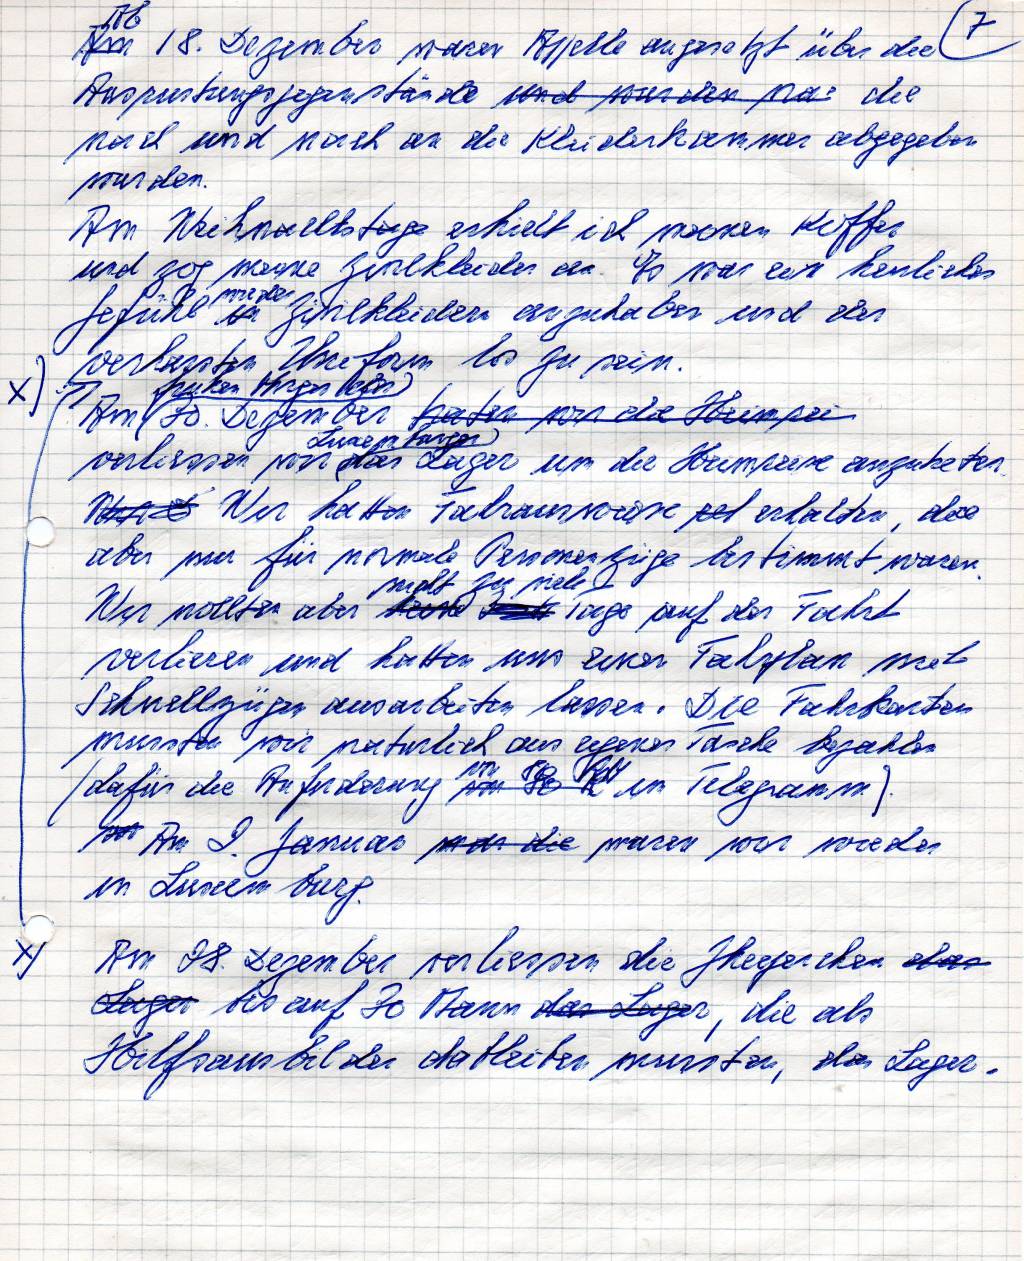 7
Ab
Am 18. Dezember waren Appelle angesetzt über die
Ausrüstungsgegenstände und wurden die
nach und nach an die Kleiderkammer abgegeben
wurden.
Am Weihnachtstage erhielt ich meinen Koffer
und zog meine Zivilkleider an. Es war ein herrliches
wieder
Gefühl in Zivilkleidern anzuhaben und der
verhassten Uniform los zu sein.
x)
frühen Morgen
Am 30. Dezember hatten wir die Heimrei
Luxemburger
verliessen wir das Lager um die Heimreise anzutreten.
Wir hatten Fahrausweise erhalten, die
aber nur für normale Personenzüge bestimmt waren.
nicht zu viele
Wir wollten aber Tage auf der Fahrt
verlieren und hatten uns einen Fahrplan mit
Schnellzügen ausarbeiten lassen. Die Fahrkarten
mussten wir natürlich aus eigener Tasche bezahlen
von
(dafür die Anforderung von 50 im Telegramm).
Am 2. Januar war die waren wir wieder
in Luxemburg.
x)
Am 28. Dezember verliessen die das
Lager bis auf 30 Mann das Lager, die als
Hilfsausbilder dableiben mussten, das Lager.